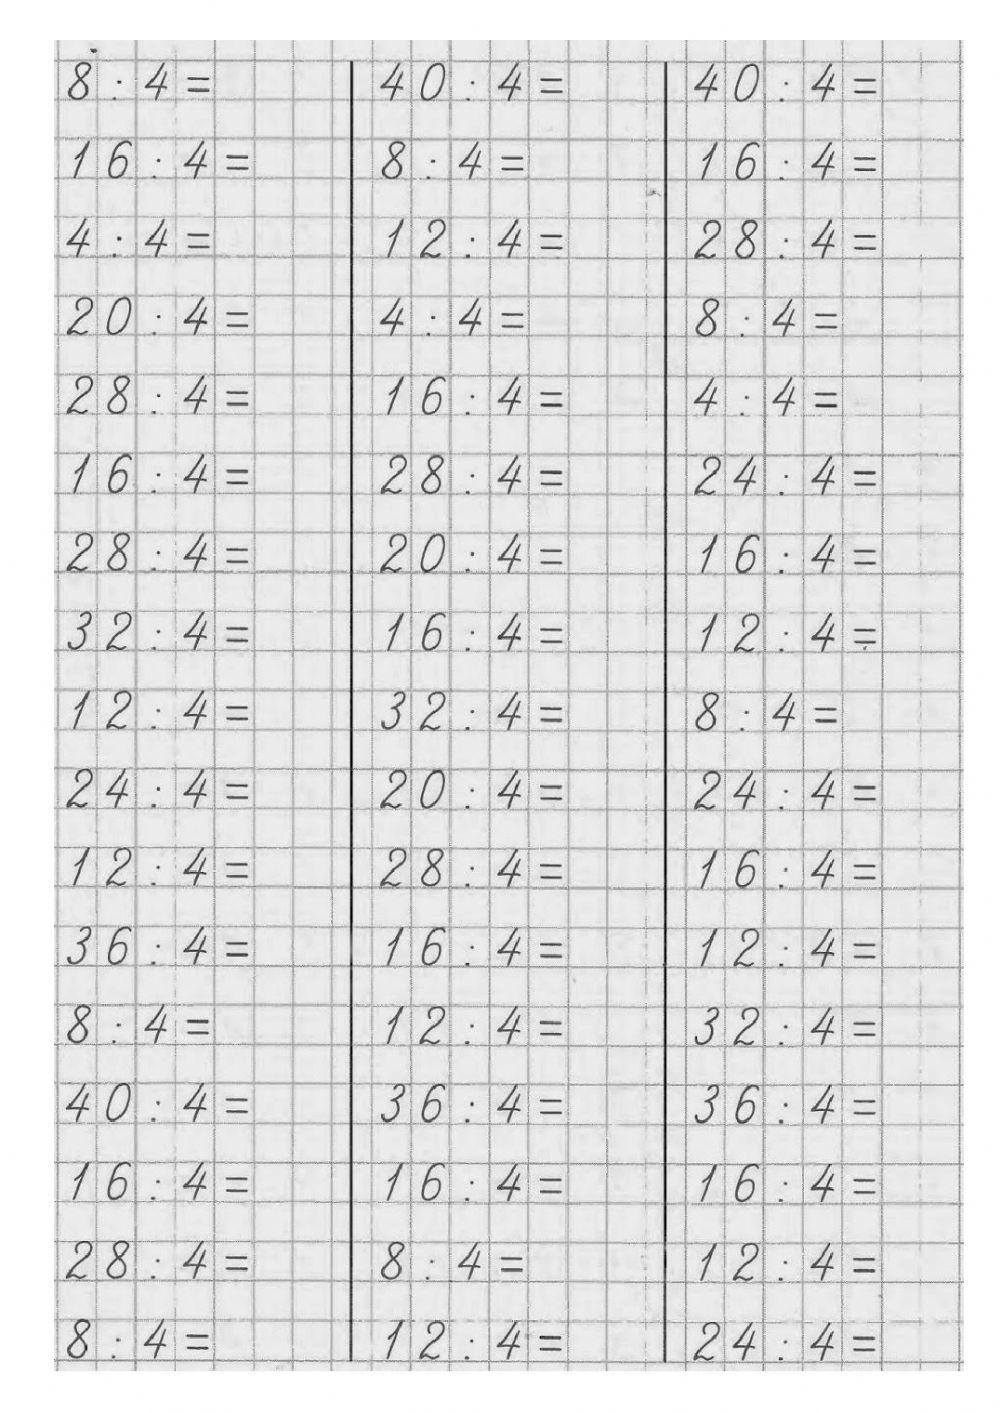 8 : 4 =
16 : 4 =
4 : 4 =
20 : 4 =
28 : 4 =
16 : 4 =
28 : 4 =
32 : 4 =
12 : 4 =
24 : 4 =
12 : 4 =
36 : 4 =
8 : 4 =
40 : 4 =
16 : 4 =
28 : 4 =
8 : 4 =
40 : 4 =
8 : 4 =
12 : 4 =
4 : 4 =
16 : 4 =
28 : 4 =
20 : 4 =
16 : 4 =
32 : 4 =
20 : 4 =
28 : 4 =
16 : 4 =
12 : 4 =
36 : 4 =
16 : 4 =
8 : 4 =
12 : 4 =
40 : 4 =
16 : 4 =
28 : 4 =
8 : 4 =
4 : 4 =
24 : 4 =
16 : 4 =
12 : 4 =
8 : 4 =
24 : 4 =
16 : 4 =
12 : 4 =
32 : 4 =
36 : 4 =
16 : 4 =
12 : 4 =
24 : 4 =